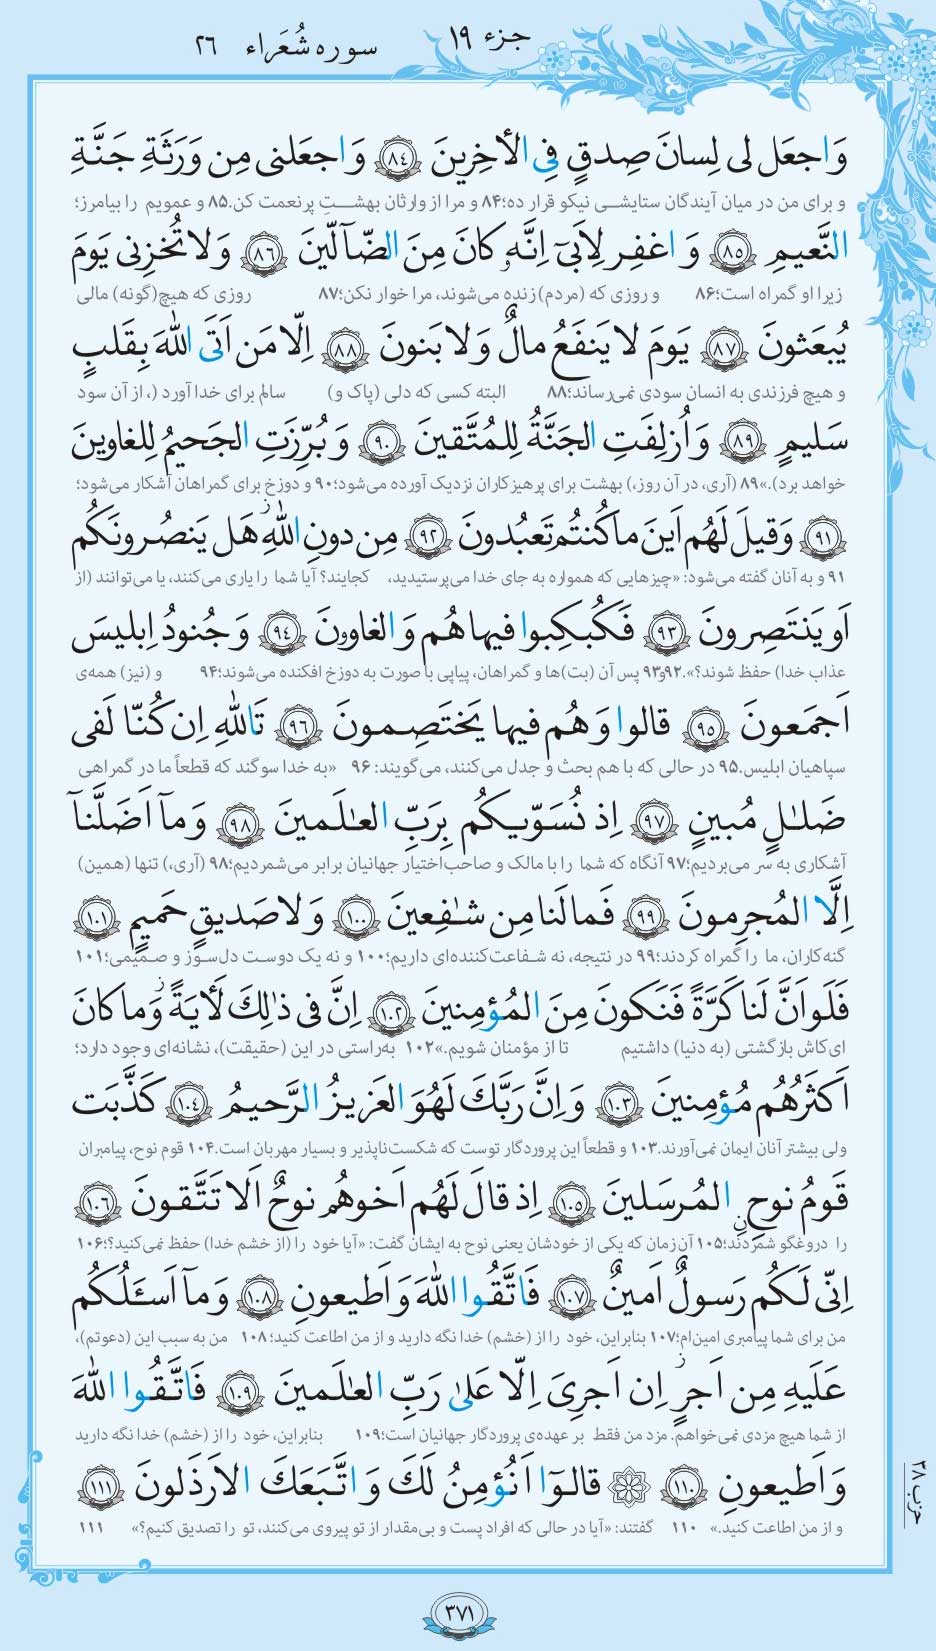 جزء ۱۹
سوره شُعَراء ۲۶
وَاجعَل لی لِسانَ صِدقٍ فِی الأخِرینَ ﴿۸۴﴾ وَاجعَلنی مِن وَرَثَةِ جَنَّةِ
و برای من در میان آیندگان ستایشــی نیکو قرار ده؛۸۴ و مرا از وارثان بهشــتِ پرنعمت کن.۸۵ و عمویم را بیامرز؛
النَّعیمِ ﴿۸۵﴾ وَاغفِر لِاَبیٓ اِنَّهٗ کانَ مِنَ الضّآلّینَ ﴿۸۶﴾ وَلا تُخزِنی یَومَ
زیرا او گمراه است؛۸۶ و روزی که (مردم) زنده می‌شوند، مرا خوار نکن؛۸۷ روزی که هیچ(گونه) مالی
یُبعَثونَ ﴿۸۷﴾ یَومَ لا یَنفَعُ مالٌ وَلا بَنونَ ﴿۸۸﴾ اِلّا مَن اَتَی اللهَ بِقَلبٍ
و هیچ فرزندی به انسان سودی نمی‌رساند؛۸۸ البته کسی که دلی (پاک و) سالم برای خدا آورد (، از آن سود
سَلیمٍ ﴿۸۹﴾ وَاُزلِفَتِ الجَنَّةُ لِلمُتَّقینَ ﴿۹۰﴾ وَبُرِّزَتِ الجَحیمُ لِلغاوینَ
خواهد برد).»۸۹ (آری، در آن روز،) بهشت برای پرهیزکاران نزدیک آورده می‌شود؛۹۰ و دوزخ برای گمراهان آشکار می‌شود؛
﴿۹۱﴾ وَقیلَ لَهُم اَینَ ما کُنتُم تَعبُدونَ ﴿۹۲﴾ مِن دونِ اللهِ ز هَل یَنصُرونَکُم
۹۱ و به آنان گفته می‌شود: «چیزهایی که همواره به جای خدا می‌پرستیدید، کجایند؟ آیا شما را یاری می‌کنند، یا می‌توانند (از
اَو یَنتَصِرونَ ﴿۹۳﴾ فَکُبکِبوا فیها هُم وَالغاوٗنَ ﴿۹۴﴾ وَجُنودُ اِبلیسَ
عذاب خدا) حفظ شوند؟».۹۲و۹۳ پس آن (بت)ها و گمراهان، پیاپی با صورت به دوزخ افکنده می‌شوند؛۹۴ و (نیز) همه‌ی
اَجمَعونَ ﴿۹۵﴾ قالوا وَهُم فیها یَختَصِمونَ ﴿۹۶﴾ تَاللهِ اِن کُنّا لَفی
سپاهیان ابلیس.۹۵ در حالی که با هم بحث و جدل می‌کنند، می‌گویند: ۹۶ «به خدا سوگند که قطعاً ما در گمراهی
ضَلـٰلٍ مُبینٍ ﴿۹۷﴾ اِذ نُسَوّیکُم بِرَبِّ العـٰلَمینَ ﴿۹۸﴾ وَمآ اَضَلَّنآ
آشکاری به سر می‌بردیم؛۹۷ آنگاه که شما را با مالک و صاحب‌اختیار جهانیان برابر می‌شمردیم؛۹۸ (آری،) تنها (همین)
اِلَّا المُجرِمونَ ﴿۹۹﴾ فَما لَنا مِن شـٰفِعینَ ﴿۱۰۰﴾ وَلا صَدیقٍ حَمیمٍ ﴿۱۰۱﴾
گنه‌کاران، ما را گمراه کردند؛۹۹ در نتیجه، نه شـفاعت‌کننده‌ای داریم؛۱۰۰ و نه یک دوست دل‌سوز و صمیمی؛۱۰۱
فَلَو اَنَّ لَنا کَرَّةً فَنَکونَ مِنَ المُؤمِنینَ ﴿۱۰۲﴾ اِنَّ فی ذٰلِکَ لَأیَةً ز وَما کانَ
ای‌کاش بازگشتی (به دنیا) داشتیم تا از مؤمنان شویم.»۱۰۲ به‌راستی در این (حقیقت)، نشانه‌ای وجود دارد؛
اَکثَرُهُم مُؤمِنینَ ﴿۱۰۳﴾ وَاِنَّ رَبَّکَ لَهُوَ العَزیزُ الرَّحیمُ ﴿۱۰۴﴾ کَذَّبَت
ولی بیشتر آنان ایمان نمی‌آورند.۱۰۳ و قطعاً این پروردگار توست که شکست‌ناپذیر و بسیار مهربان است.۱۰۴ قوم نوح، پیامبران
قَومُ نوحٍ نِ المُرسَلینَ ﴿۱۰۵﴾ اِذ قالَ لَهُم اَخوهُم نوحٌ اَلا تَتَّقونَ ﴿۱۰۶﴾
را دروغگو شمردند؛۱۰۵ آن‌زمان که یکی از خودشان یعنی نوح به ایشان گفت: «آیا خود را (از خشم خدا) حفظ نمی‌کنید؟؛۱۰۶
اِنّی لَکُم رَسولٌ اَمینٌ ﴿۱۰۷﴾ فَاتَّقُوا اللهَ وَاَطیعونِ ﴿۱۰۸﴾ وَمآ اَسئَلُکُم
من برای شما پیامبری امین‌ام؛۱۰۷ بنابراین، خود را از (خشم) خدا نگه دارید و از من اطاعت کنید؛۱۰۸ من به سبب این (دعوتم)،
عَلَیهِ مِن اَجرٍ ز اِن اَجرِیَ اِلّا عَلیٰ رَبِّ العـٰلَمینَ ﴿۱۰۹﴾ فَاتَّقُوا اللهَ
از شما هیچ مزدی نمی‌خواهم. مزد من فقط بر عهده‌ی پروردگار جهانیان است؛۱۰۹ بنابراین، خود را از (خشم) خدا نگه دارید
وَاَطیعونِ ﴿۱۱۰﴾ قالوٓا اَنُؤمِنُ لَکَ وَاتَّبَعَکَ الاَرذَلونَ ﴿۱۱۱﴾
و از من اطاعت کنید.» ۱۱۰ گفتند: «آیا در حالی که افراد پست و بی‌مقدار از تو پیروی می‌کنند، تو را تصدیق کنیم؟» ۱۱۱
حزب ۳۸
۳۷۱